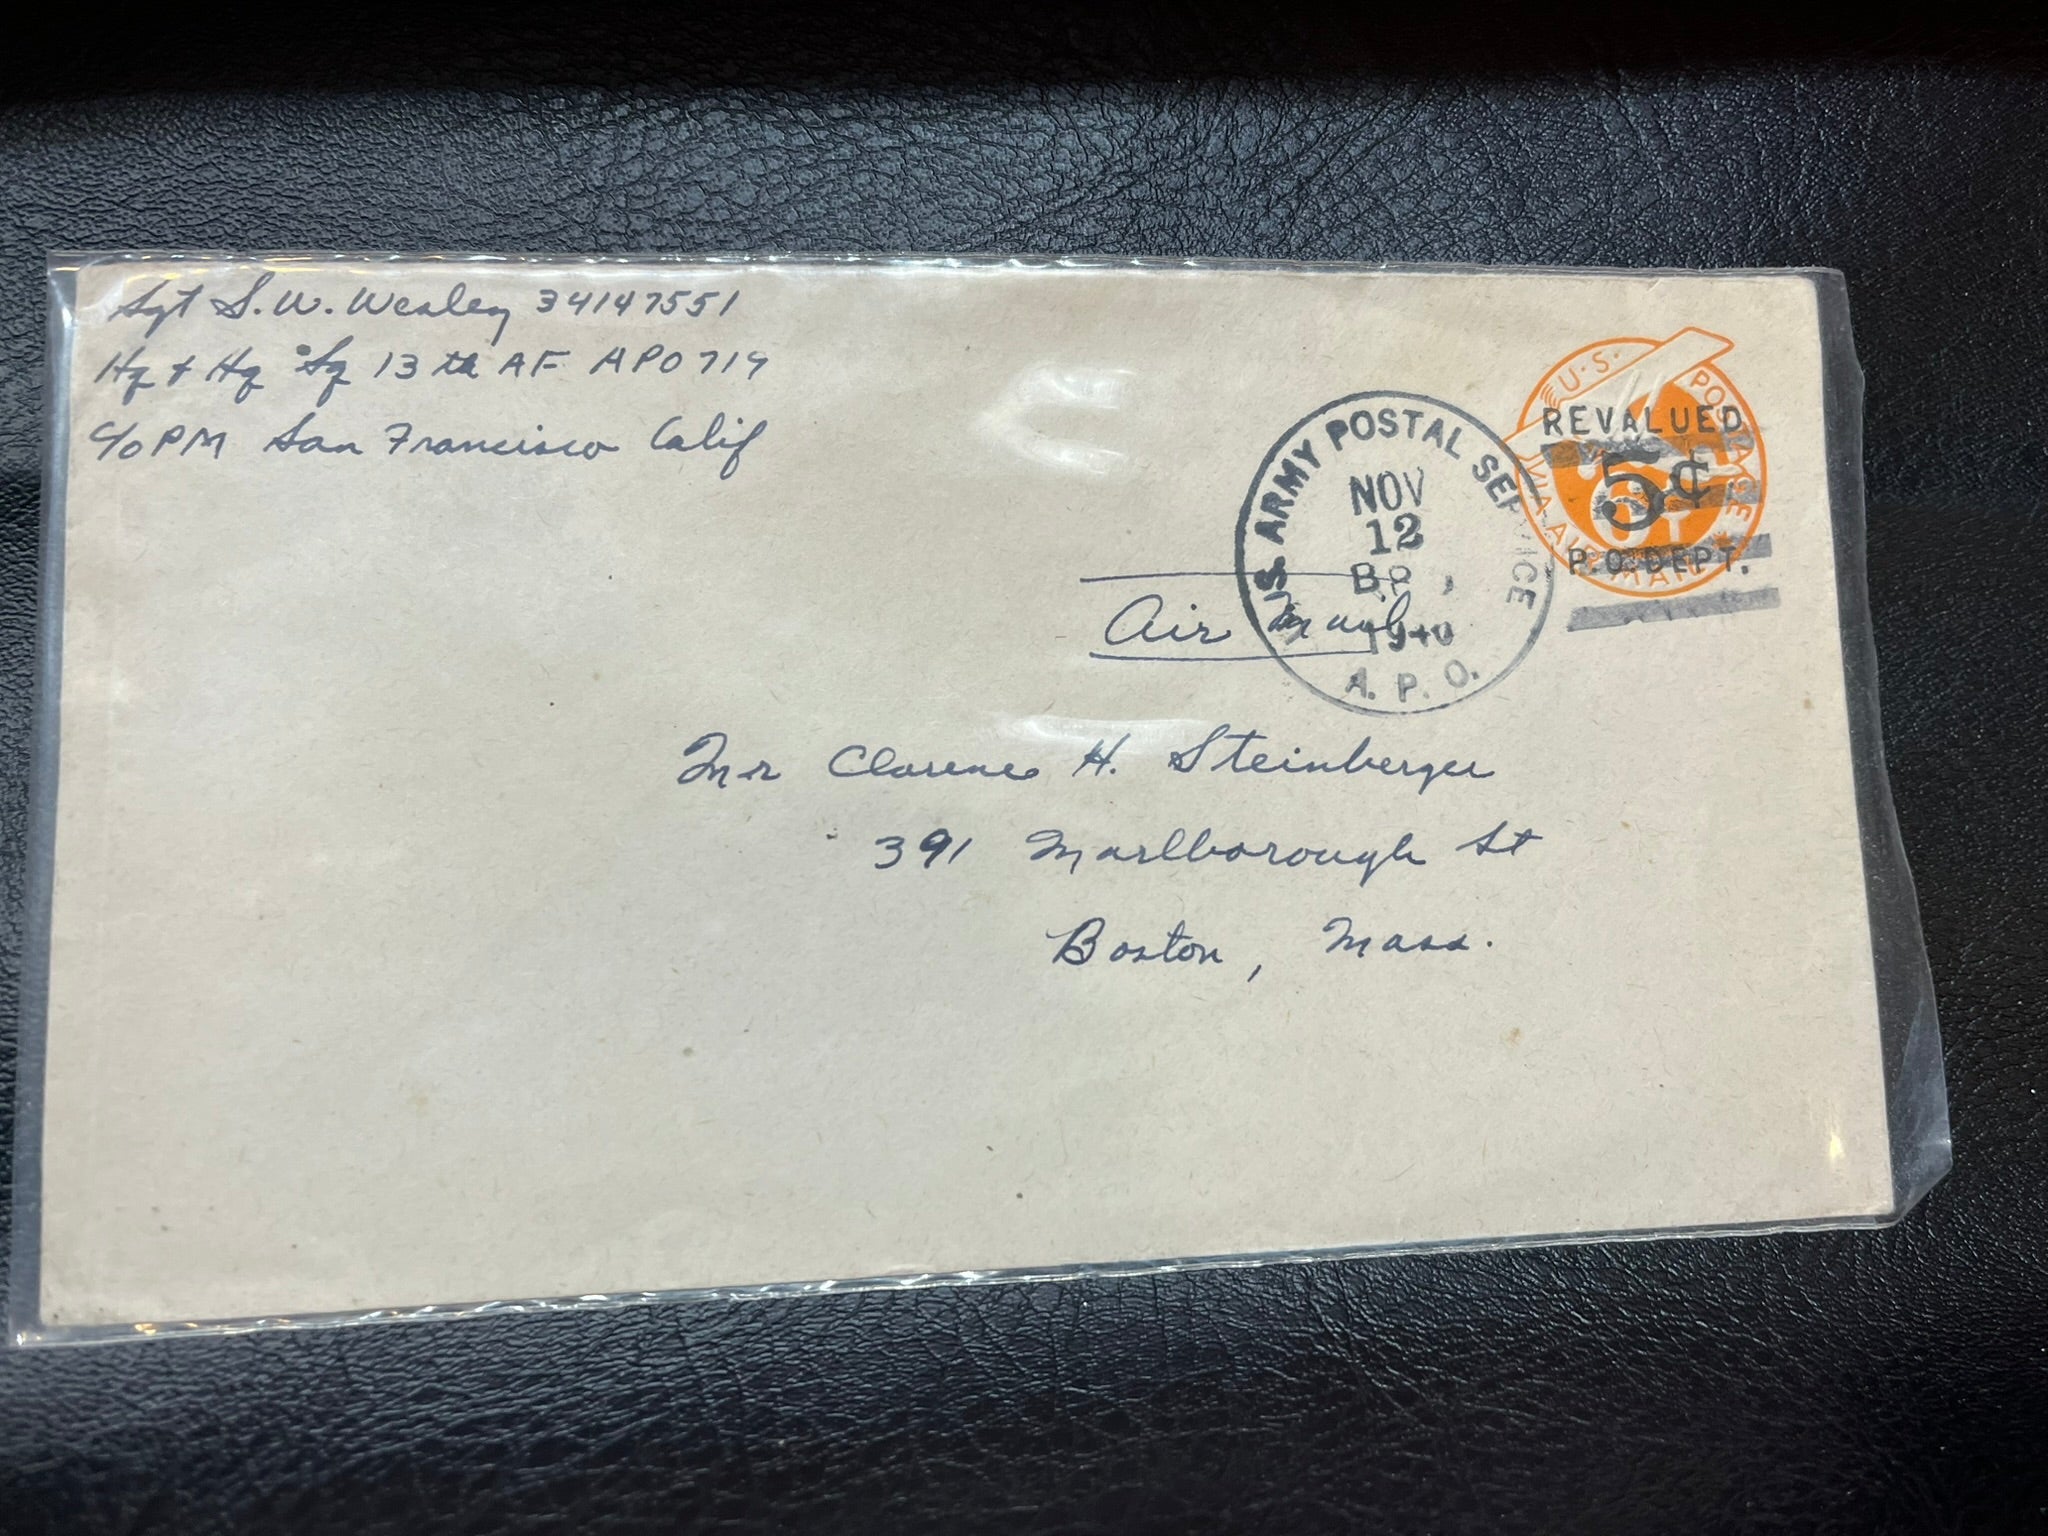 Sgt S. W. Wesley 34147551
Hq & Hq Sq 13th AF APO 719
c/o PM San Francisco Calif
U.S. POSTAGE
VIA AIR MAIL
REVALUED
5¢
P.O. DEPT.
U.S. ARMY POSTAL SERVICE
NOV
12
A. P. O.
Air Mail
Mr Clarence H. Steinberger
391 Marlborough St
Boston, Mass.